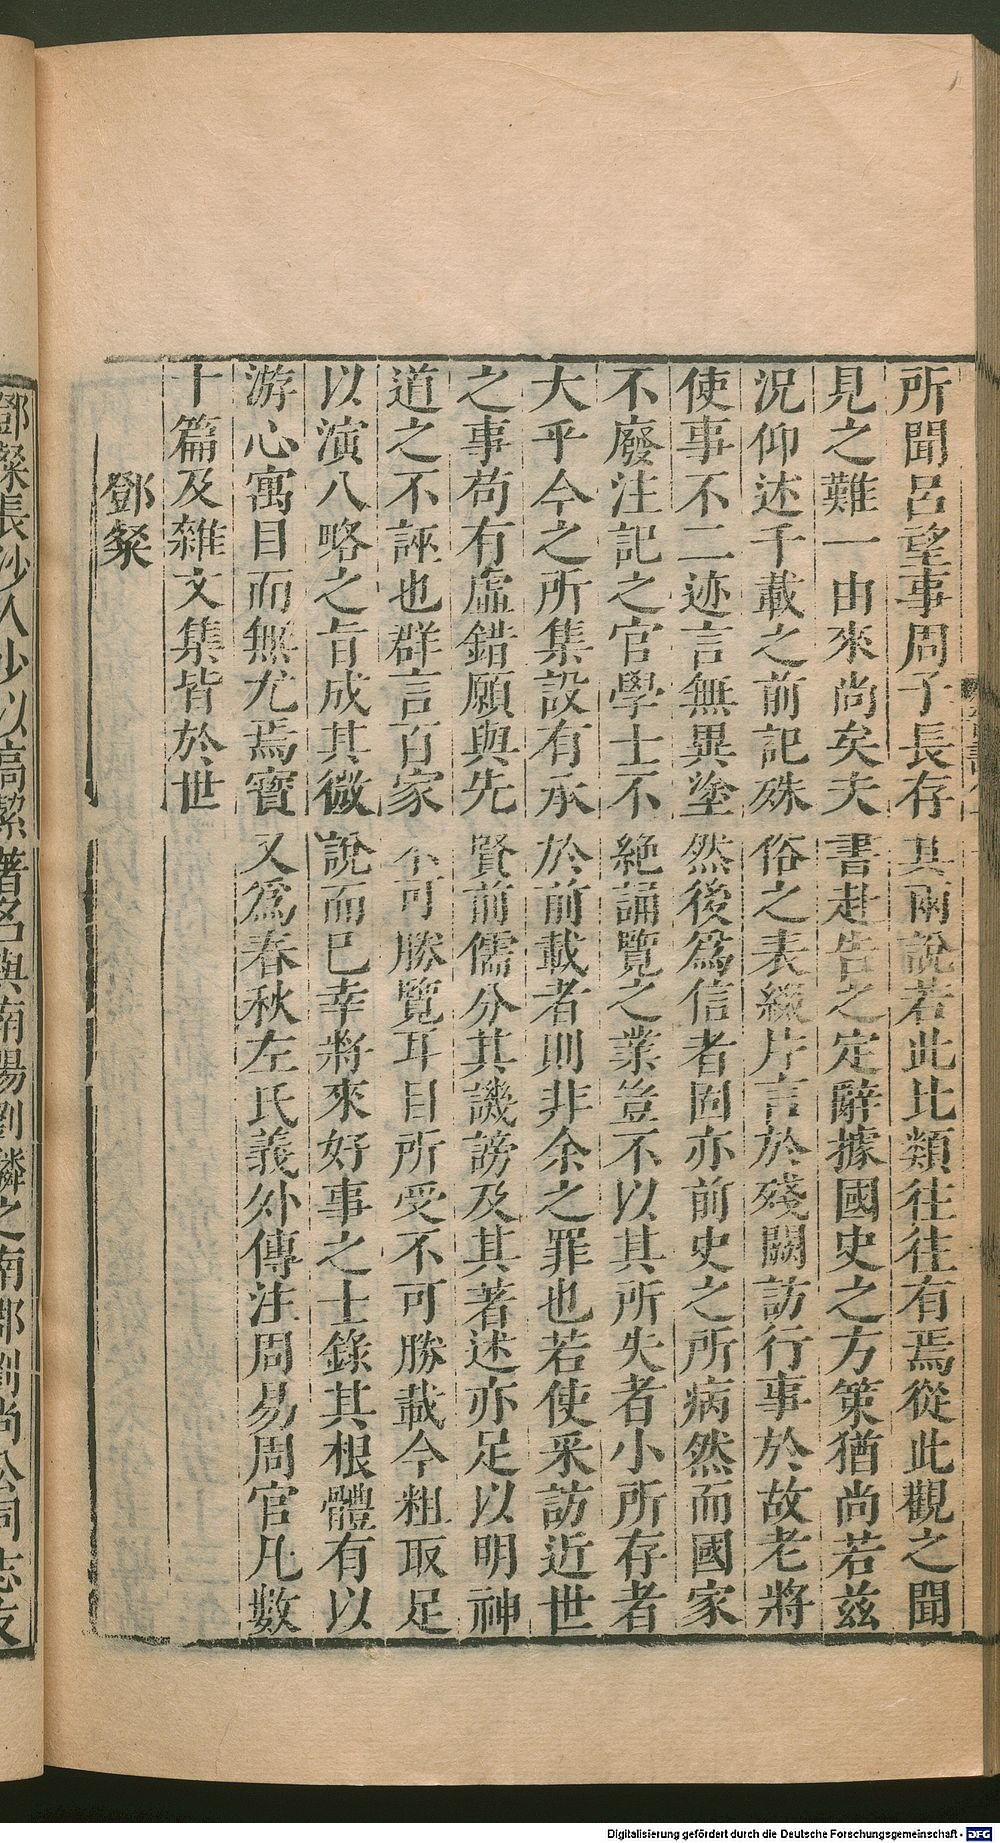 所聞呂望事周子長存其兩說若此比類往往有焉從此觀之聞
見之難一由來尚矣夫書赴告之定辭據國史之方策猶尚若茲
況仰述千載之前記殊俗之表綴片言於殘闕訪行事於故老將
使事不二迹言無異塗然後爲信者固亦前史之所病然而國家
不廢注記之官學士不絶誦覽之業豈不以其所失者小所存者
大乎今之所集設有承於前載者則非余之罪也若使采訪近世
之事苟有虛錯願與先賢前儒分其譏謗及其著述亦足以明神
道之不誣也群言百家不可勝覽耳目所受不可勝載今粗取足
以演八略之旨成其微說而已幸將來好事之士錄其根體有以
游心寓目而無尤焉寶又爲春秋左氏義外傳注周易周官凡數
十篇及雜文集皆於世
鄧粲
鄧粲長沙人少以高絜著名與南陽劉驎之南郡劉尚公同志友
Digitalisierung gefördert durch die Deutsche Forschungsgemeinschaft - DFG